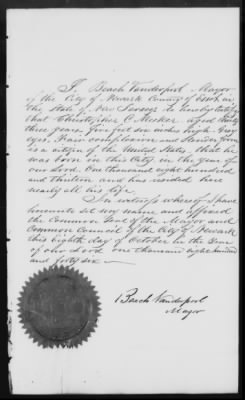 I, Beach Vanderpool Mayor
of the City of Newark County of Essex in
the State of New Jersey do hereby Certify
that Christopher C Meeker aged thirty
three years, five feet six inches high Grey
eyes, Fair complexion and slender form
is a citizen of the United States, that he
was born in this City in the year of
our Lord One thousand eight hundred
and thirteen and has resided here
nearly all his life.
In witness whereof I have
hereunto set my name and affixed
the Common Seal of the Mayor and
Common Council of the City of Newark
this eighth day of October in the year
of our Lord one thousand eight hundred
and forty six
Beach Vanderpool
Mayor